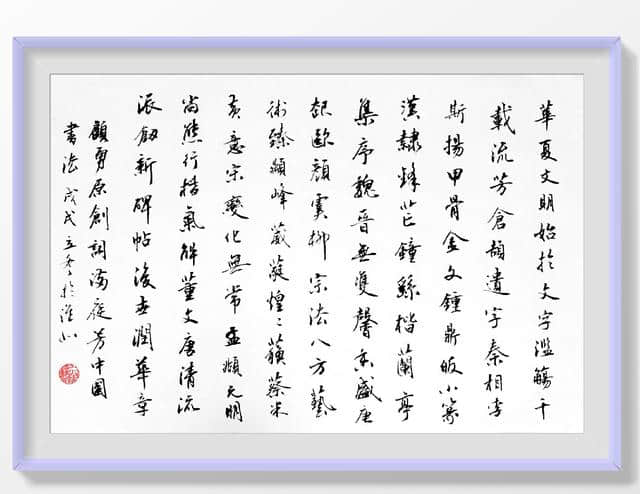 華夏文明始於文字濫觴千
載流芳倉頡遺字秦相李
斯揚甲骨金文鍾鼎皈小篆
漢隸鋒芒鐘繇楷蘭亭
集序魏晉無雙馨香盛唐
起歐顏虞柳宗法八方藝
術臻巔峰葳蕤煌〻蘇蔡米
黃意宋變化無常孟頫元明
尚態行楷氣解董文唐清流
派新碑帖後世潤華章
顧勇原創詞滿庭芳中國
書法戊戌立冬於淮北